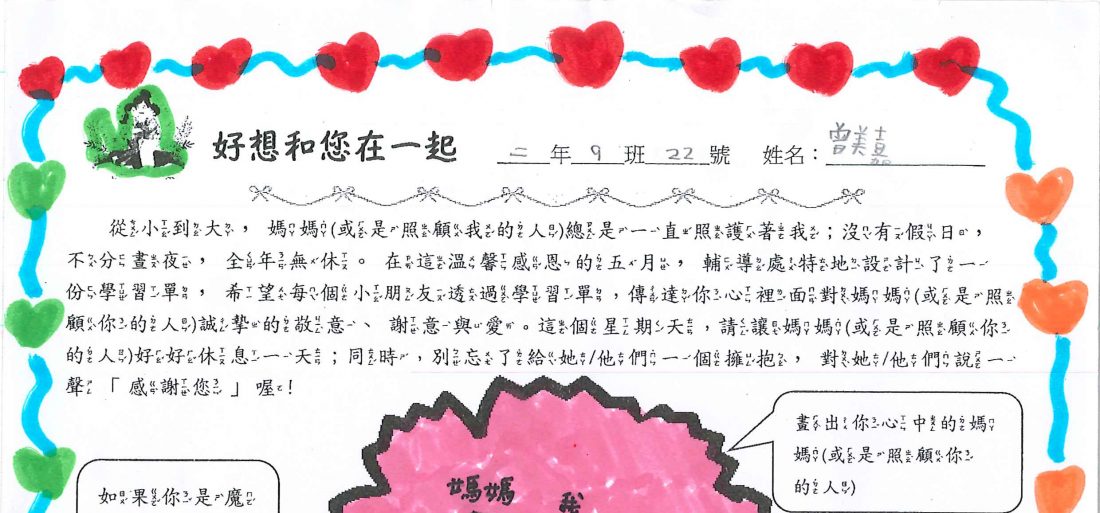 好想和您在一起 二年9班22號 姓名：曾美
從小到大，媽媽(或是照顧我的人)總是一直照護著我；沒有假日，
不分晝夜，全年無休。在這溫馨感恩的五月，輔導處特地設計了一
份學習單，希望每個小朋友透過學習單，傳達你心裡面對媽媽(或是照
顧你的人)誠摯的敬意、謝意與愛。這個星期天，請讓媽媽(或是照顧你
的人)好好休息一天；同時，別忘了給她/他們一個擁抱，對她/他們說一
聲「感謝您」喔！
畫出你心中的媽
媽(或是照顧你
的人)
媽媽 我
如果你是魔